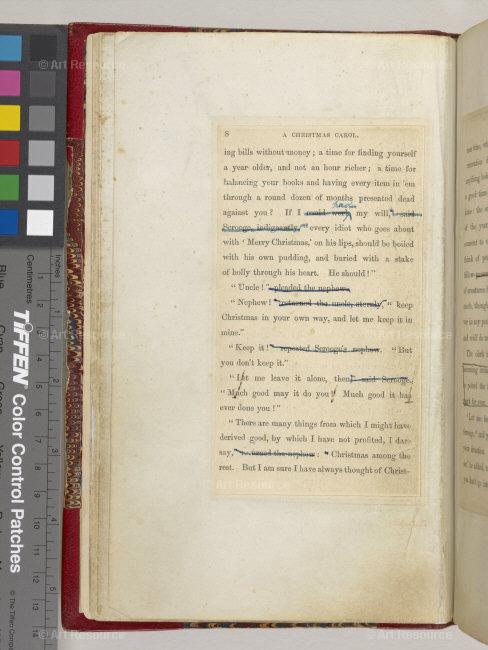 © Art Resource
8 A CHRISTMAS CAROL.
ing bills without money; a time for finding yourself
a year older, and not an hour richer; a time for
balancing your books and having every item in 'em
through a round dozen of months presented dead
have
against you? If I could work my will," said
Scrooge, indignantly, "every idiot who goes about
with 'Merry Christmas,' on his lips, should be boiled
with his own pudding, and buried with a stake
of holly through his heart. He should!"
"Uncle!" pleaded the nephew.
"Nephew!" returned the uncle, sternly, "keep
Christmas in your own way, and let me keep it in
mine."
"Keep it!" repeated Scrooge's nephew. "But
you don't keep it."
"Let me leave it alone, then," said Scrooge.
"Much good may it do you! Much good it has
ever done you!"
"There are many things from which I might have
derived good, by which I have not profited, I dare
say," returned the nephew: "Christmas among the
rest. But I am sure I have always thought of Christ-
Inches
Centimetres
TIFFEN Color Control Patches
© The Tiffen Company
Blue
Cyan
Green
Yellow
1
2
3
4
5
6
7
8
9
10
11
12
13
14